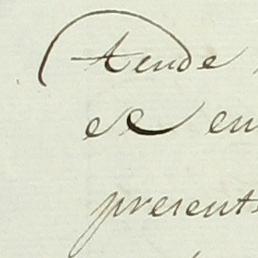 tende
et en
present